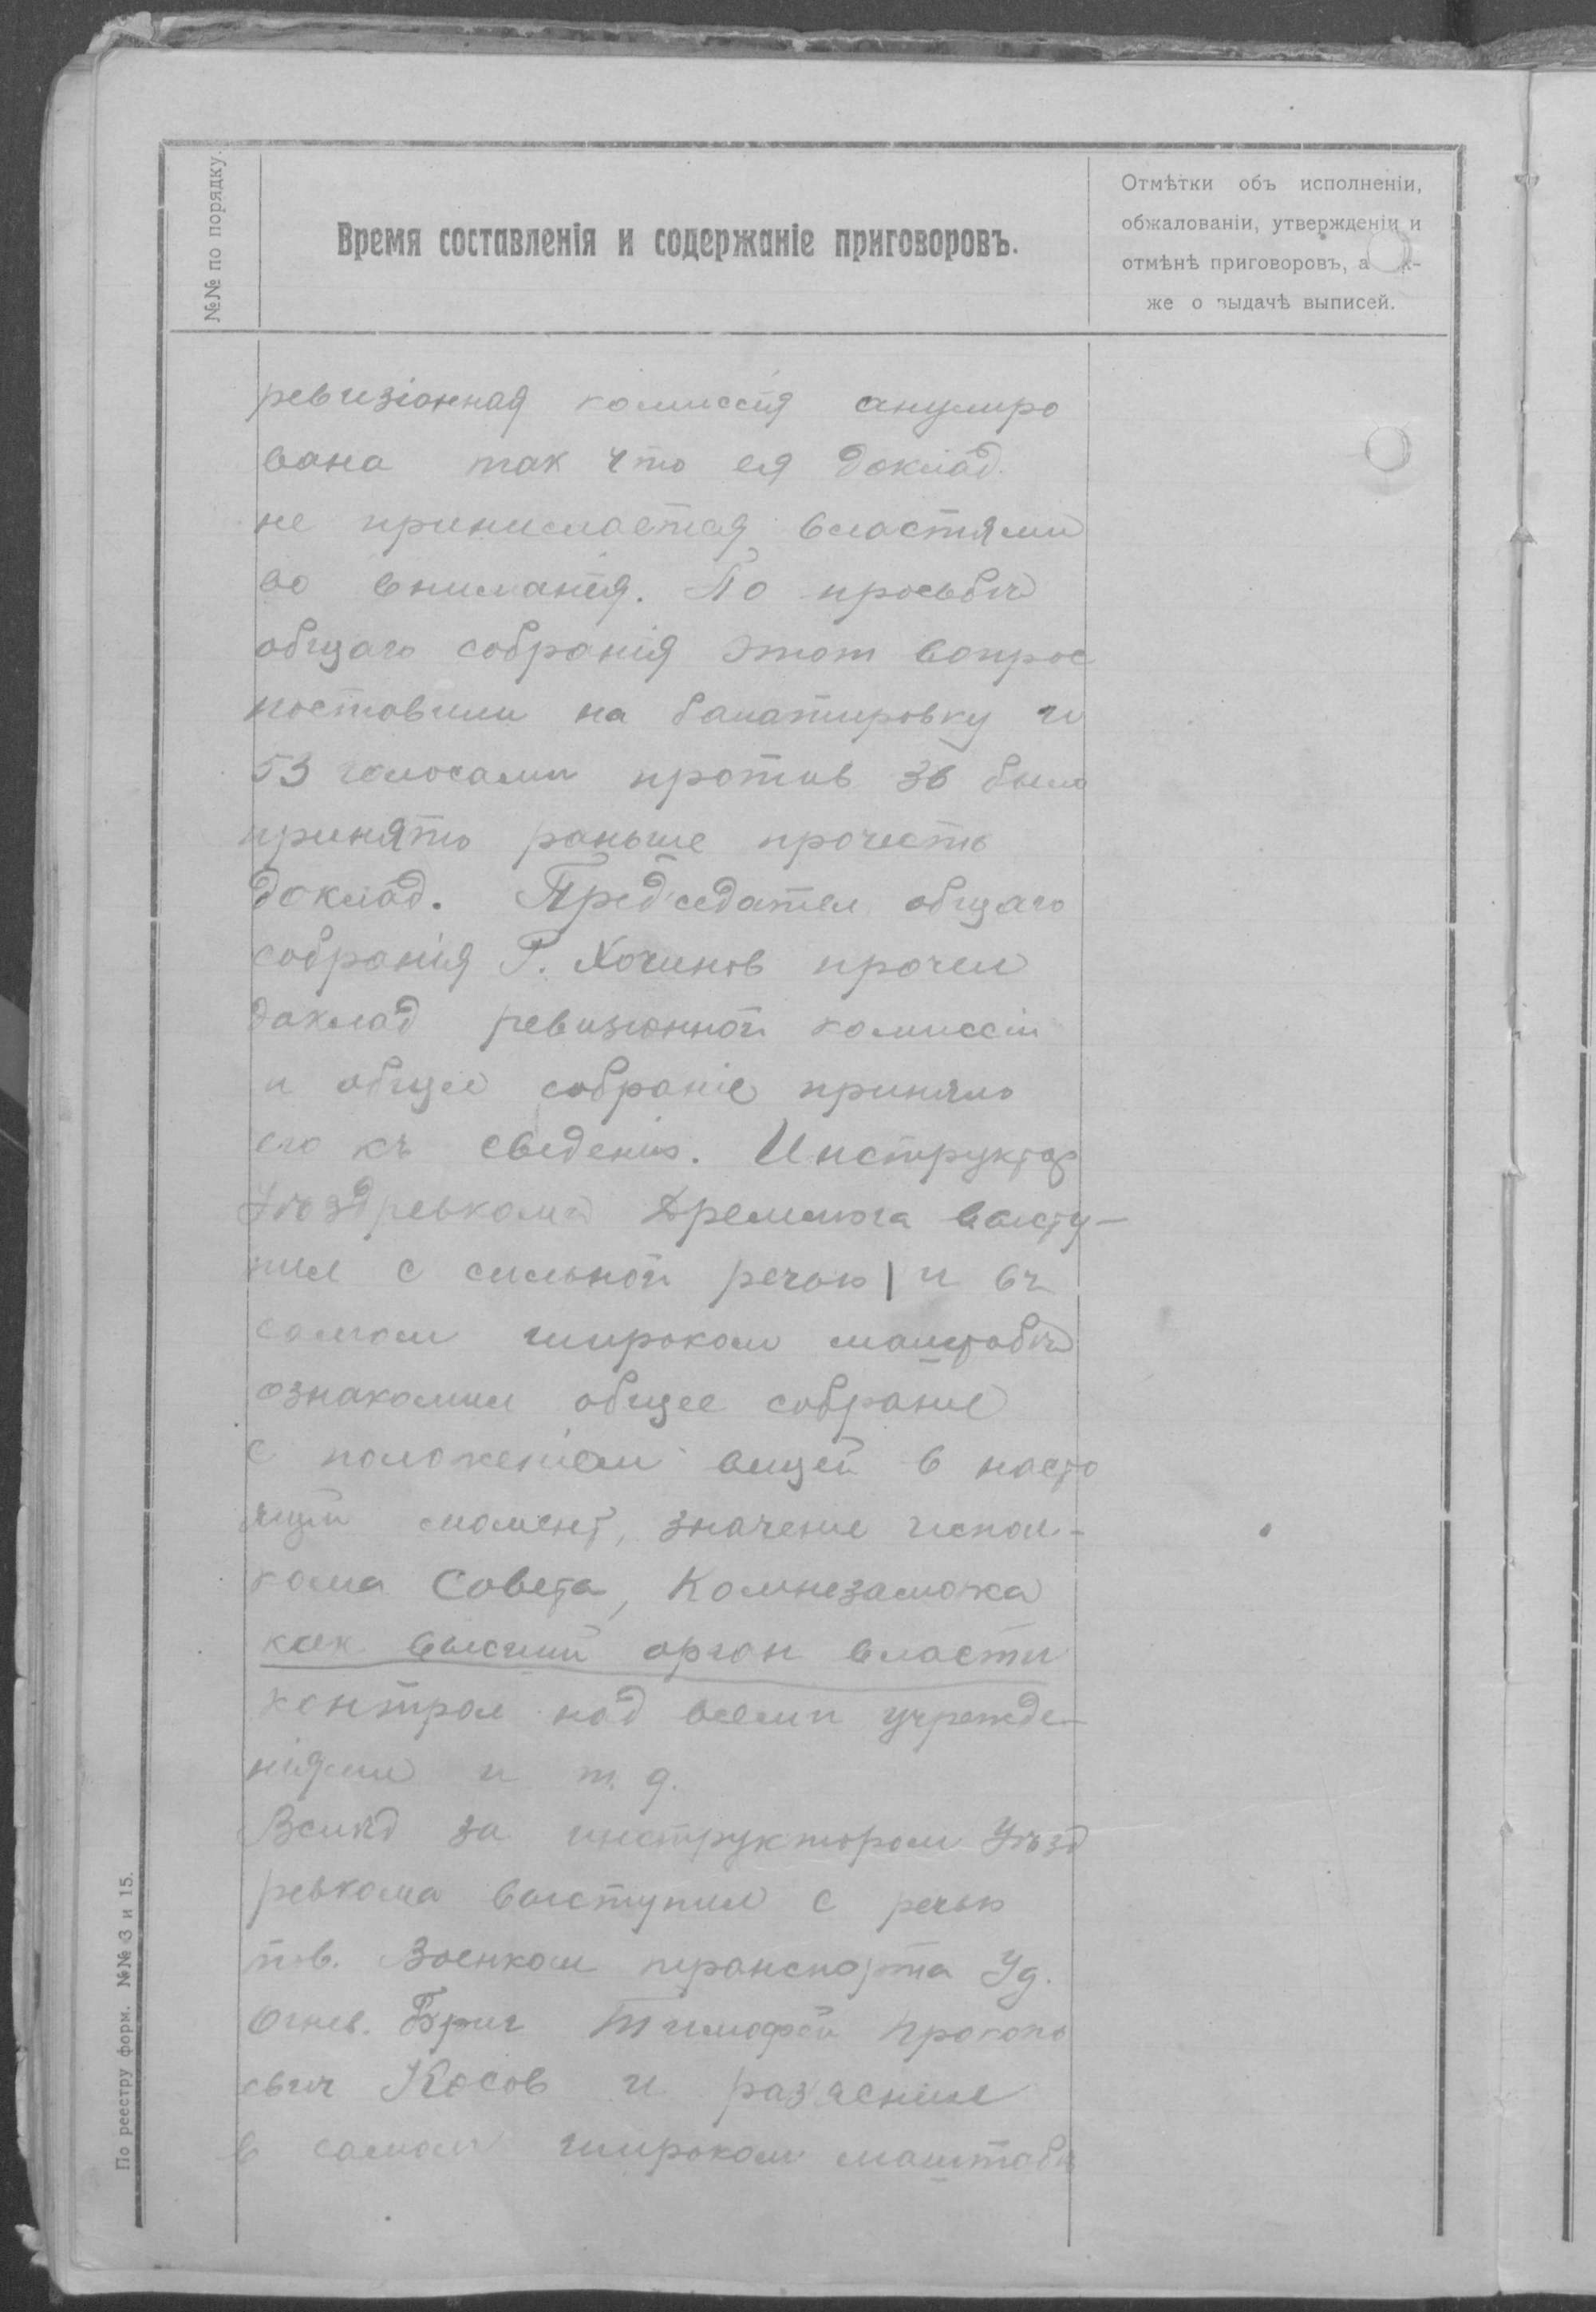 №№ по порядку.
Время составленія и содержаніе приговоровъ.
Отмѣтки объ исполненіи,
обжалованіи, утвержденіи и
отмѣнѣ приговоровъ, а к-
же о выдачѣ выписей.
ревизіонная комиссія анулиро
вана так что ея доклад.
не принимается властями
во вниманія. По просьбѣ
общаго собранія этот вопрос
поставили на балатировку и
53 голосами против 36 было
принято раньше прочесть
доклад. Председател общаго
собранія Г. Хочинов прочел
доклад ревизіонной комиссіи
и общее собраніе приняло
его къ сведенію. Инструктор
Уѣздревкома Дремлюга высту-
пил с сильной речью | и въ
самом широком маштабѣ
ознакомил общее собраніе
с положеніем вещей в насто
ящій момент, значеніе испол-
кома Совета, Комнезаможа
как высший орган власти
контрол над всеми учрежде-
ніями и т. д.
Вслѣд за инструктором Уѣзд
ревкома выступил с речью
тов. Военком транспорта Уд.
Огнев. Бриг Тимофей Прокопо
евич Косов и раз'яснил
в самом широком маштабѣ
По реестру форм. №№ 3 и 15.